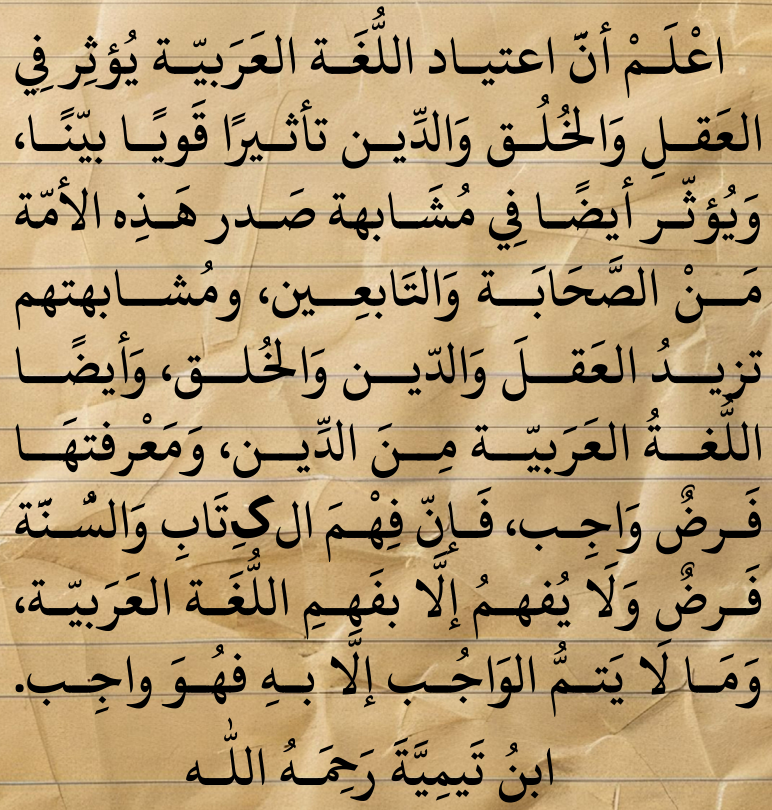 اعْلَمْ أنّ اعتياد اللُّغَة العَرَبيّة يُؤثِر فِي
العَقلِ وَالخُلُق وَالدِّين تأثيرًا قَويًا بيّنًا،
وَيُؤثّر أيضًا فِي مُشَابهة صَدر هَذِه الأمّة
مَنْ الصَّحَابَة وَالتَابعِين، ومُشابهتهم
تزيدُ العَقلَ وَالدّين وَالخُلق، وَأيضًا
اللُّغةُ العَرَبيّة مِنَ الدِّين، وَمَعْرفتهَا
فَرضٌ وَاجِب، فَإنّ فِهْمَ الكِتَابِ وَالسُنّة
فَرضٌ وَلَا يُفهمُ إلَّا بفَهِمِ اللُّغَة العَرَبيّة،
وَمَا لَا يَتمُّ الوَاجُب إلَّا بهِ فهُوَ واجِب.
ابنُ تَيمِيَّةَ رَحِمَهُ اللّٰه